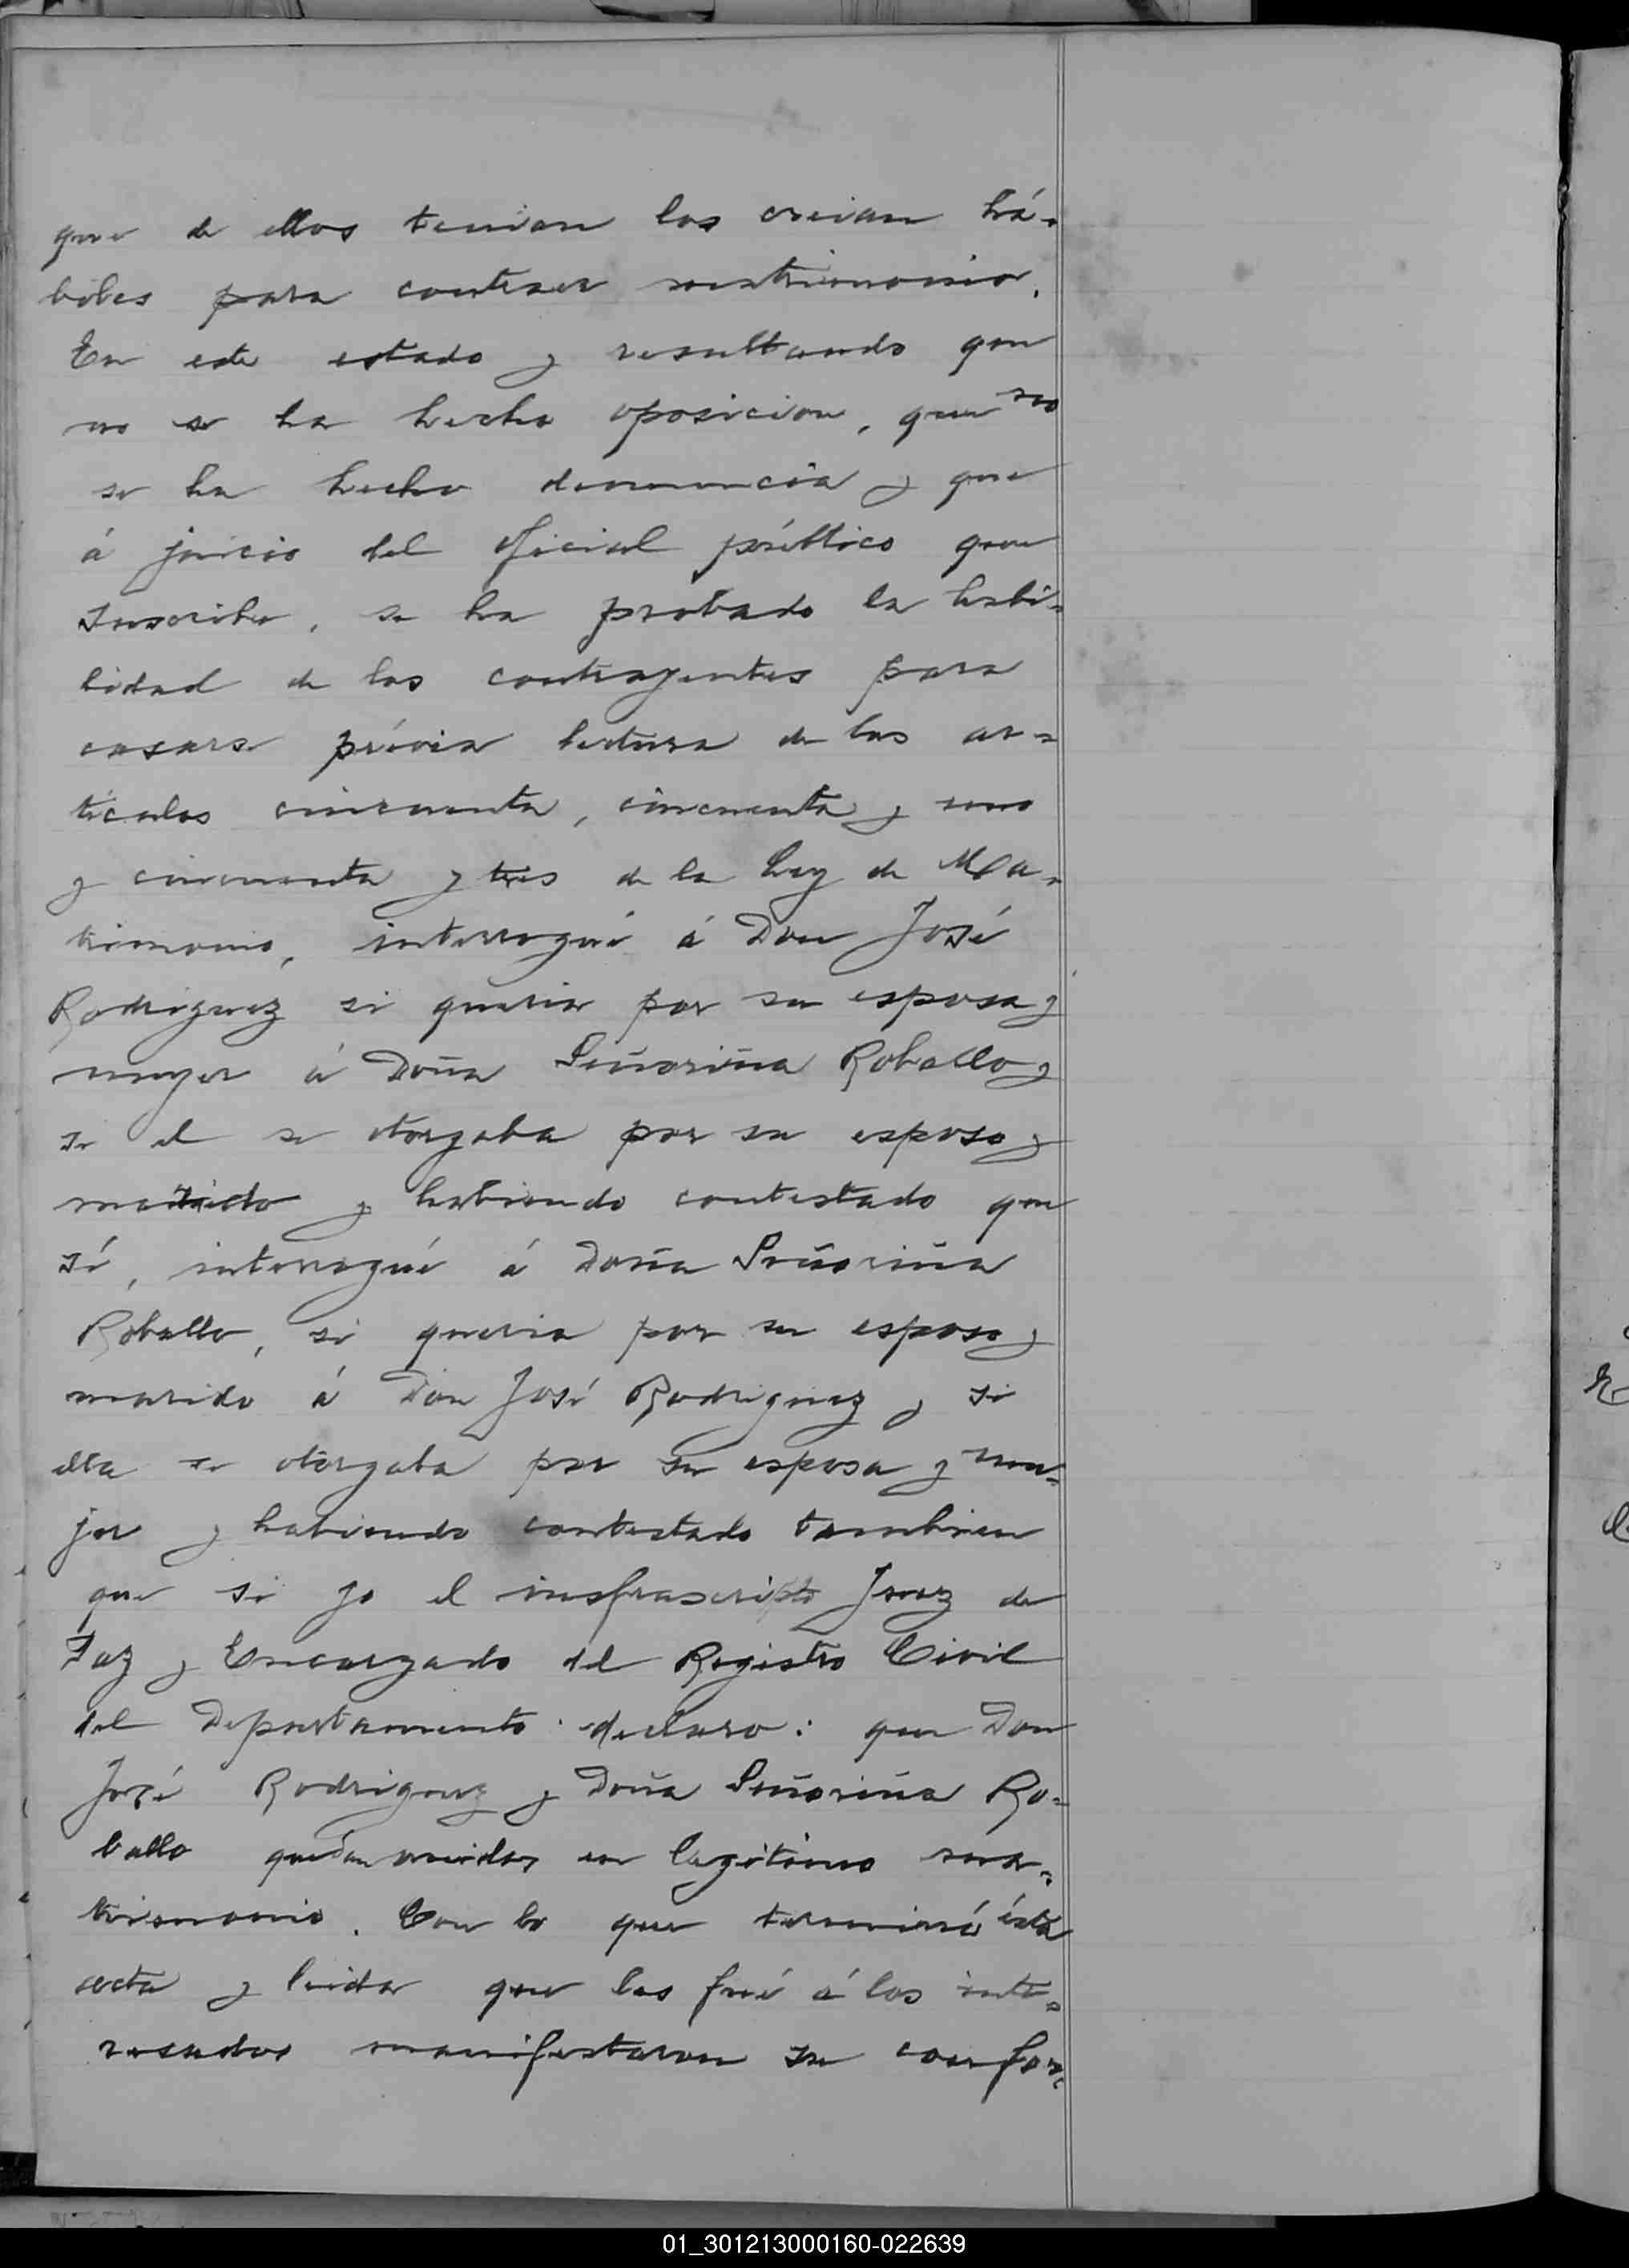 que de ellos tenian los creian há-
biles para contraer matrimonio.
En este estado y resultando que
no se ha hecho oposicion, que no
se ha hecho denuncia y que
á juicio del oficial público que
suscribe, se ha probado la habi-
lidad de los contrayentes para
casarse prévia lectura de los ar-
tículos cincuenta, cincuenta y uno
y cincuenta y tres de la Ley de Ma-
trimonio, interrogué á Don José
Rodriguez si queria por su esposa y
muger á Doña Señoriña Roballo y
si el se otorgaba por su esposo y
marido y habiendo contestado que
sí, interrogué á Doña Señoriña
Roballo, si queria por su esposo y
marido á Don José Rodriguez y si
ella se otorgaba por su esposa y mu-
jer y habiendo contestado tambien
que si yo el infrascripto Juez de
Paz y Encargado del Registro Civil
del Departamento declaro: que Don
José Rodriguez y Doña Señoriña Ro-
ballo quedan unidos en legitimo ma-
trimonio. Con lo que terminó ésta
acta y leida que les fué á los inte-
resados manifestaron su confor-
01_301213000160-022639